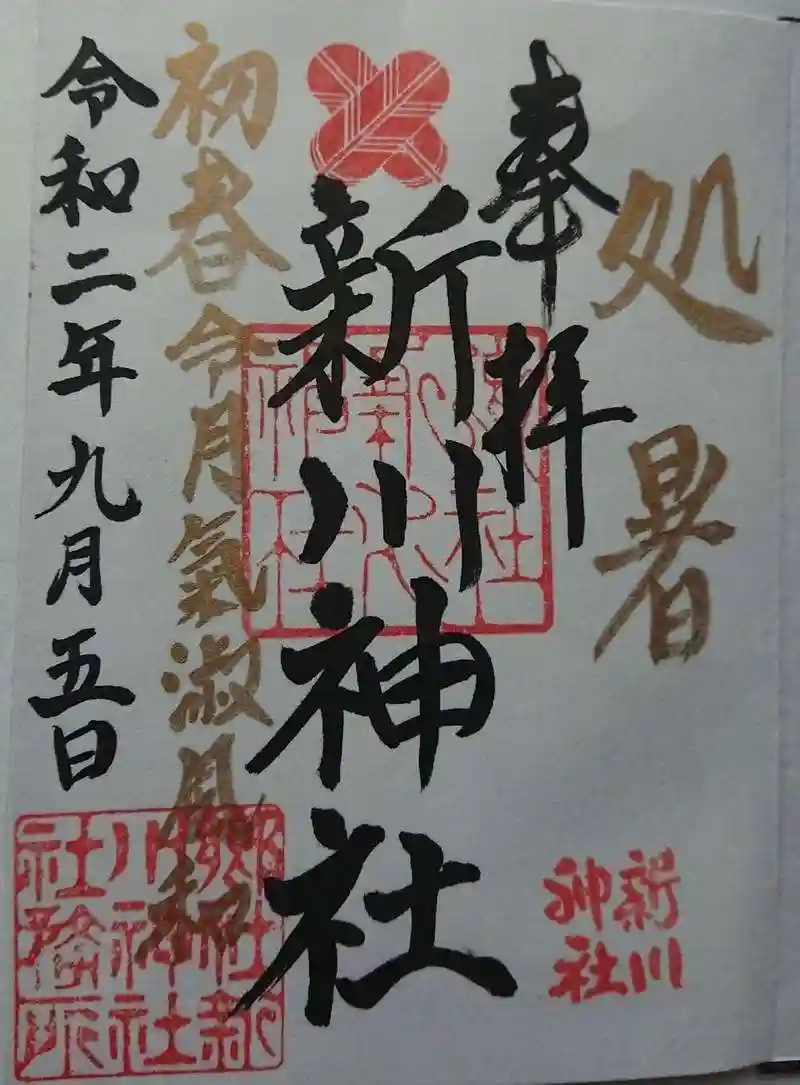 処暑
奉拝
新川神社
初春令月氣淑風和
令和二年九月五日
郷社
新川
神社
郷社新
川神社
社務所
新川
神社